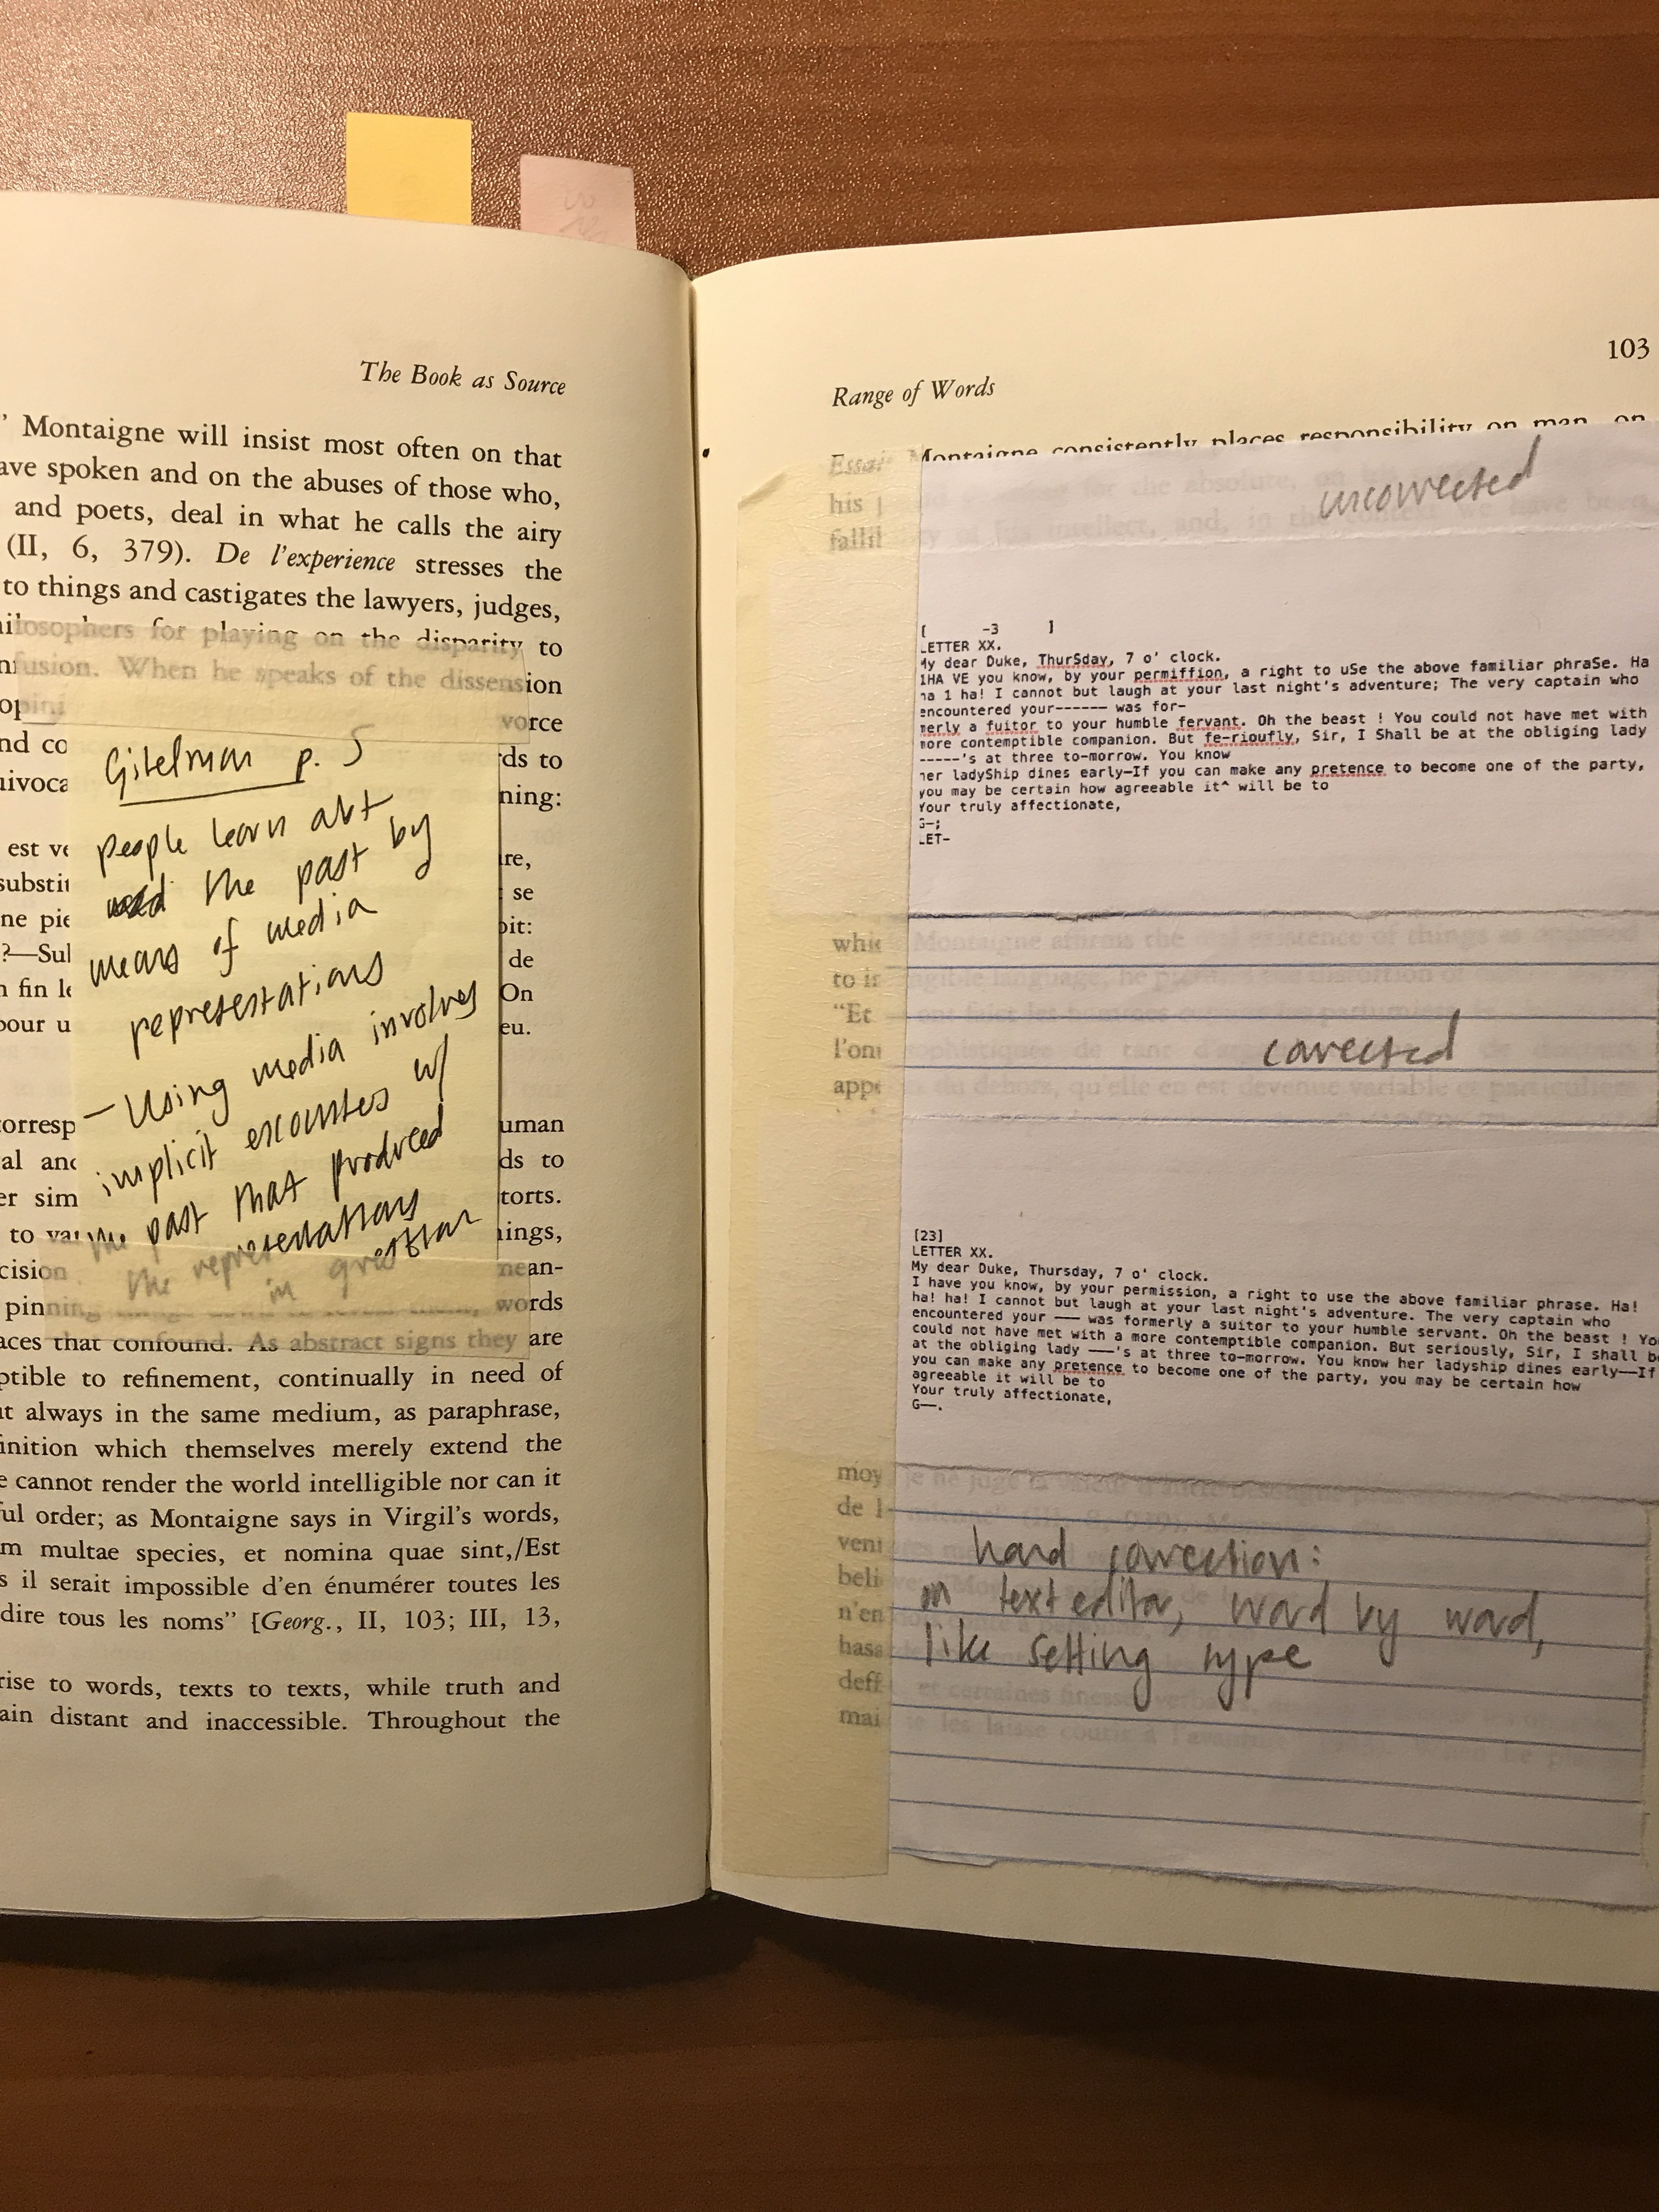 The Book as Source
" Montaigne will insist most often on that
ave spoken and on the abuses of those who,
and poets, deal in what he calls the airy
(II, 6, 379). De l'experience stresses the
to things and castigates the lawyers, judges,
ilosophers for playing on the disparity to
nfusion. When he speaks of the dissension
opini
vorce
nd co
ds to
uivoca
ning:
est ve
re,
substit
se
ne pie
oit:
?—Sul
de
n fin le
On
pour u
eu.
corresp
uman
al and
ds to
er sim
torts.
to va
ings,
cision
mean-
pinning
words
aces that confound. As abstract signs they are
ptible to refinement, continually in need of
ut always in the same medium, as paraphrase,
finition which themselves merely extend the
e cannot render the world intelligible nor can it
ful order; as Montaigne says in Virgil's words,
m multae species, et nomina quae sint,/Est
s il serait impossible d'en énumérer toutes les
dire tous les noms" [Georg., II, 103; III, 13,
rise to words, texts to texts, while truth and
ain distant and inaccessible. Throughout the
Gitelman p. 5
people learn abt
the past by
means of media
representations
— Using media involves
implicit encounters w/
the past that produced
the representations
in question
103
Range of Words
Essais Montaigne consistently places responsibility on man, on
his for the absolute, on
fallil intellect, and, in the context we have been
uncorrected
[ -3 ]
LETTER XX.
My dear Duke, ThurSday, 7 o' clock.
IHA VE you know, by your permiffion, a right to uSe the above familiar phraSe. Ha
ha 1 ha! I cannot but laugh at your last night's adventure; The very captain who
encountered your------ was for-
merly a fuitor to your humble fervant. Oh the beast ! You could not have met with
more contemptible companion. But fe-rioufly, Sir, I Shall be at the obliging lady
-----'s at three to-morrow. You know
her ladyShip dines early—If you can make any pretence to become one of the party,
you may be certain how agreeable it^ will be to
Your truly affectionate,
G—;
LET-
whic Montaigne affirms the existence of things as opposed
to in gible language, he distortion of
"Et ont faict les
l'ont sophistiquée de tant
appe du dehors, qu'elle en est devenue variable et particuliere
corrected
[23]
LETTER XX.
My dear Duke, Thursday, 7 o' clock.
I have you know, by your permission, a right to use the above familiar phrase. Ha!
ha! ha! I cannot but laugh at your last night's adventure. The very captain who
encountered your —— was formerly a suitor to your humble servant. Oh the beast ! Yo
could not have met with a more contemptible companion. But seriously, Sir, I shall b
at the obliging lady ——'s at three to-morrow. You know her ladyship dines early——If
you can make any pretence to become one of the party, you may be certain how
agreeable it will be to
Your truly affectionate,
G——.
moy je ne juge la valeur d'autre
de l
veni
beli
n'en
hasa
deff et certaines
mai je les laisse courir à
hand correction:
in text editor, word by word,
like setting type